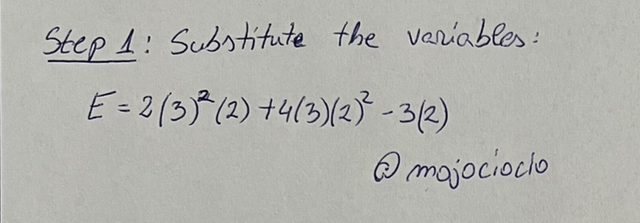 Step 1: Substitute the variables:
E = 2(3)²(2) + 4(3)(2)² - 3(2)
@mojocioclo